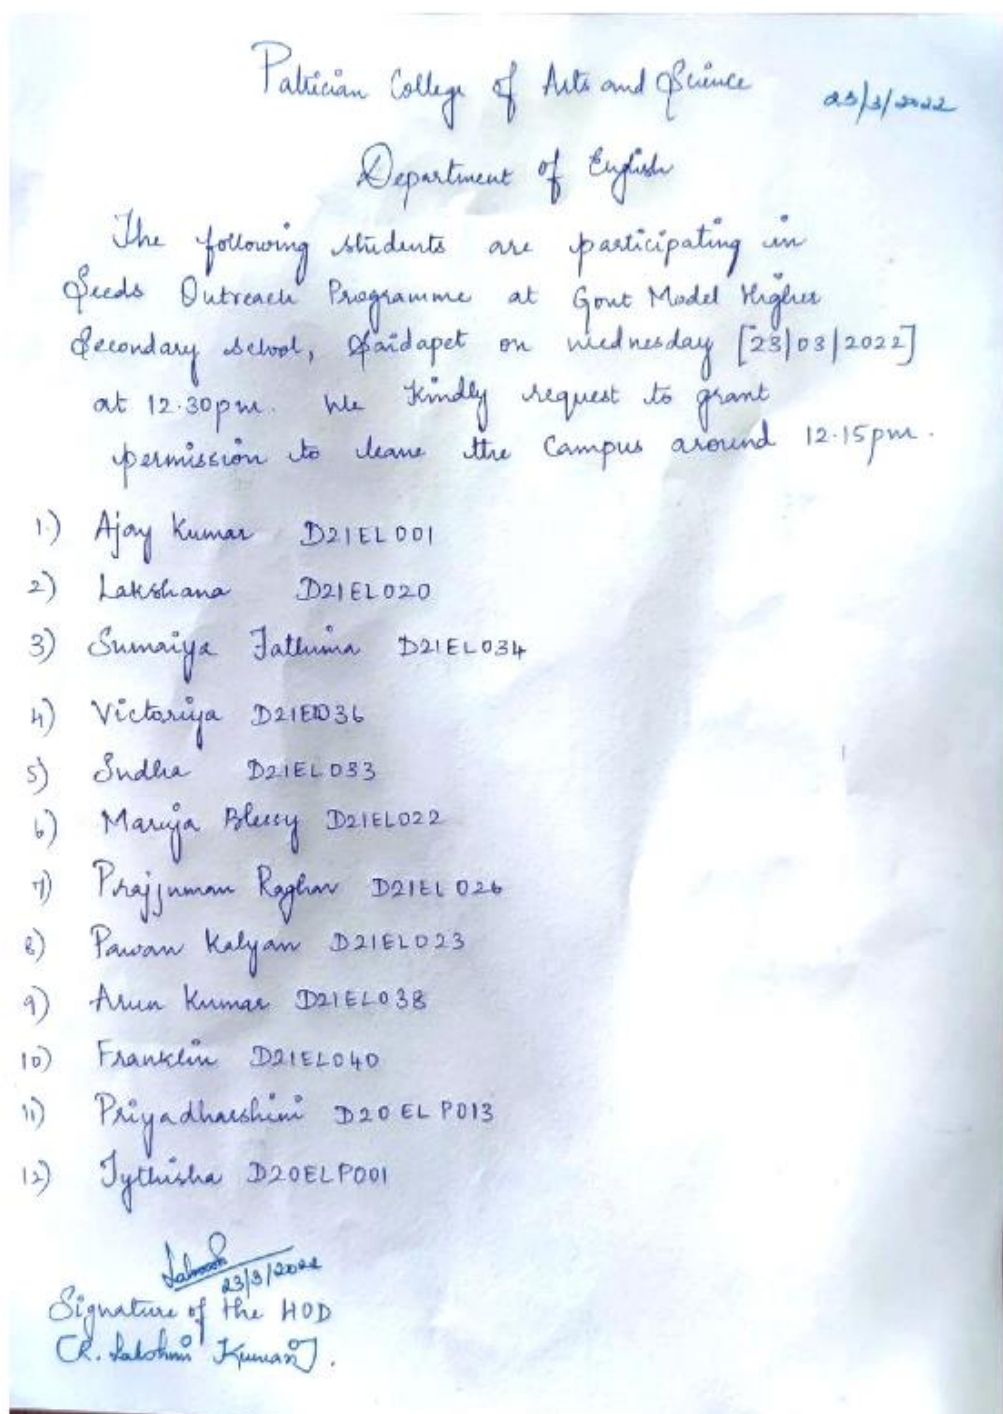 Patrician College of Arts and Science 23/3/2022
Department of English
The following students are participating in
Seeds Outreach Programme at Govt Model Higher
Secondary School, Saidapet on wednesday [23/03/2022]
at 12.30pm. We kindly request to grant
permission to leave the Campus around 12.15pm.
1.) Ajay Kumar D21EL001
2) Lakshana D21EL020
3) Sumaiya Fathima D21EL034
4) Victoriya D21EL036
5) Sudha D21EL033
6) Mariya Blessy D21EL022
7) Prajjuman Raghav D21EL026
8) Pawan Kalyan D21EL023
9) Arun Kumar D21EL038
10) Franklin D21EL040
11) Priyadharshini D20ELP013
12) Jythisha D20ELP001
23/3/2022
Signature of the HOD
(R. Lakshmi Kumari).